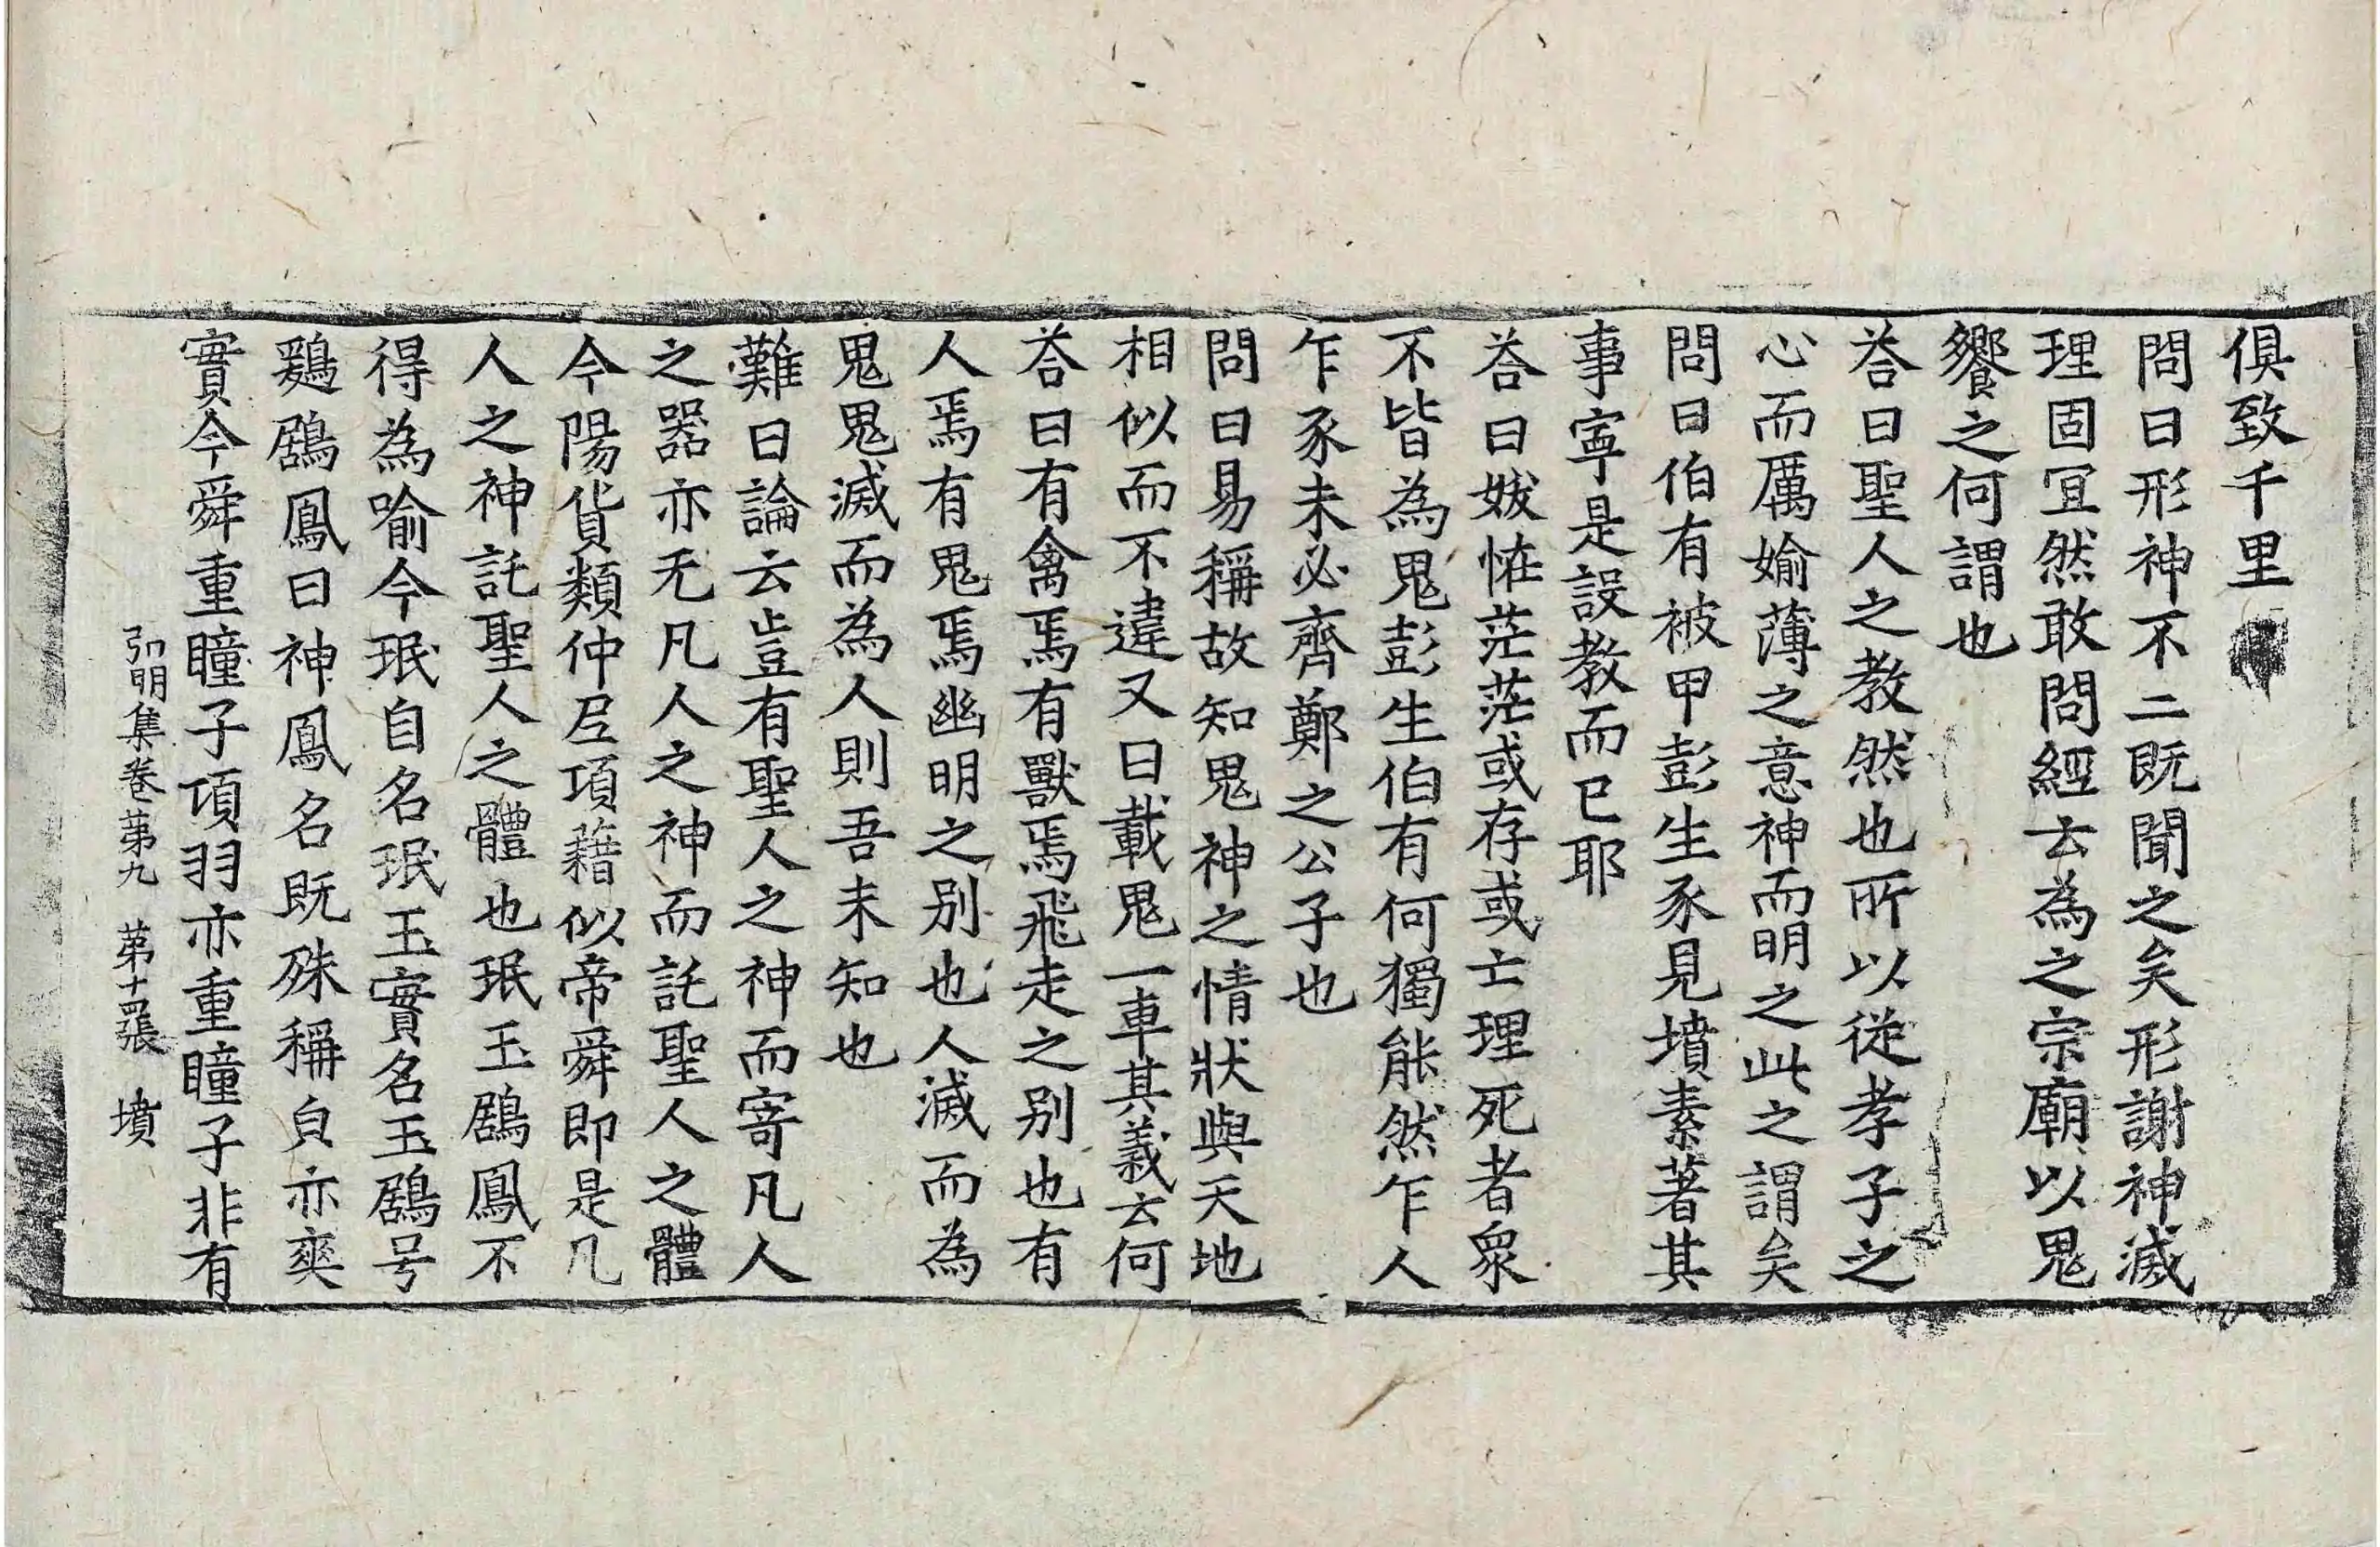 俱致千里
問曰形神不二旣聞之矣形謝神滅
理固冝然敢問經云為之宗廟以鬼
饗之何謂也
荅曰聖人之教然也所以從孝子之
心而厲媮薄之意神而明之此之謂矣
問曰伯有被甲彭生豕見墳素著其
事寧是設教而已耶
荅曰妭恠茫茫或存或亡理死者衆
不皆為鬼彭生伯有何獨能然乍人
乍豕未必齊鄭之公子也
問曰易稱故知鬼神之情狀與天地
相似而不違又曰載鬼一車其義云何
荅曰有禽焉有獸焉飛走之别也有
人焉有鬼焉幽明之别也人滅而為
鬼鬼滅而為人則吾未知也
難曰論云豈有聖人之神而寄凡人
之器亦无凡人之神而託聖人之體
今陽貨類仲𡰱項藉似帝舜即是凡
人之神託聖人之體也珉玉鶋鳳不
得為喻今珉自名珉玉實名玉鶋号
鶢鶋鳳曰神鳳名旣殊稱皃亦爽
實今舜重瞳子項羽亦重瞳子非有
弘明集卷苐九 苐十四張 墳